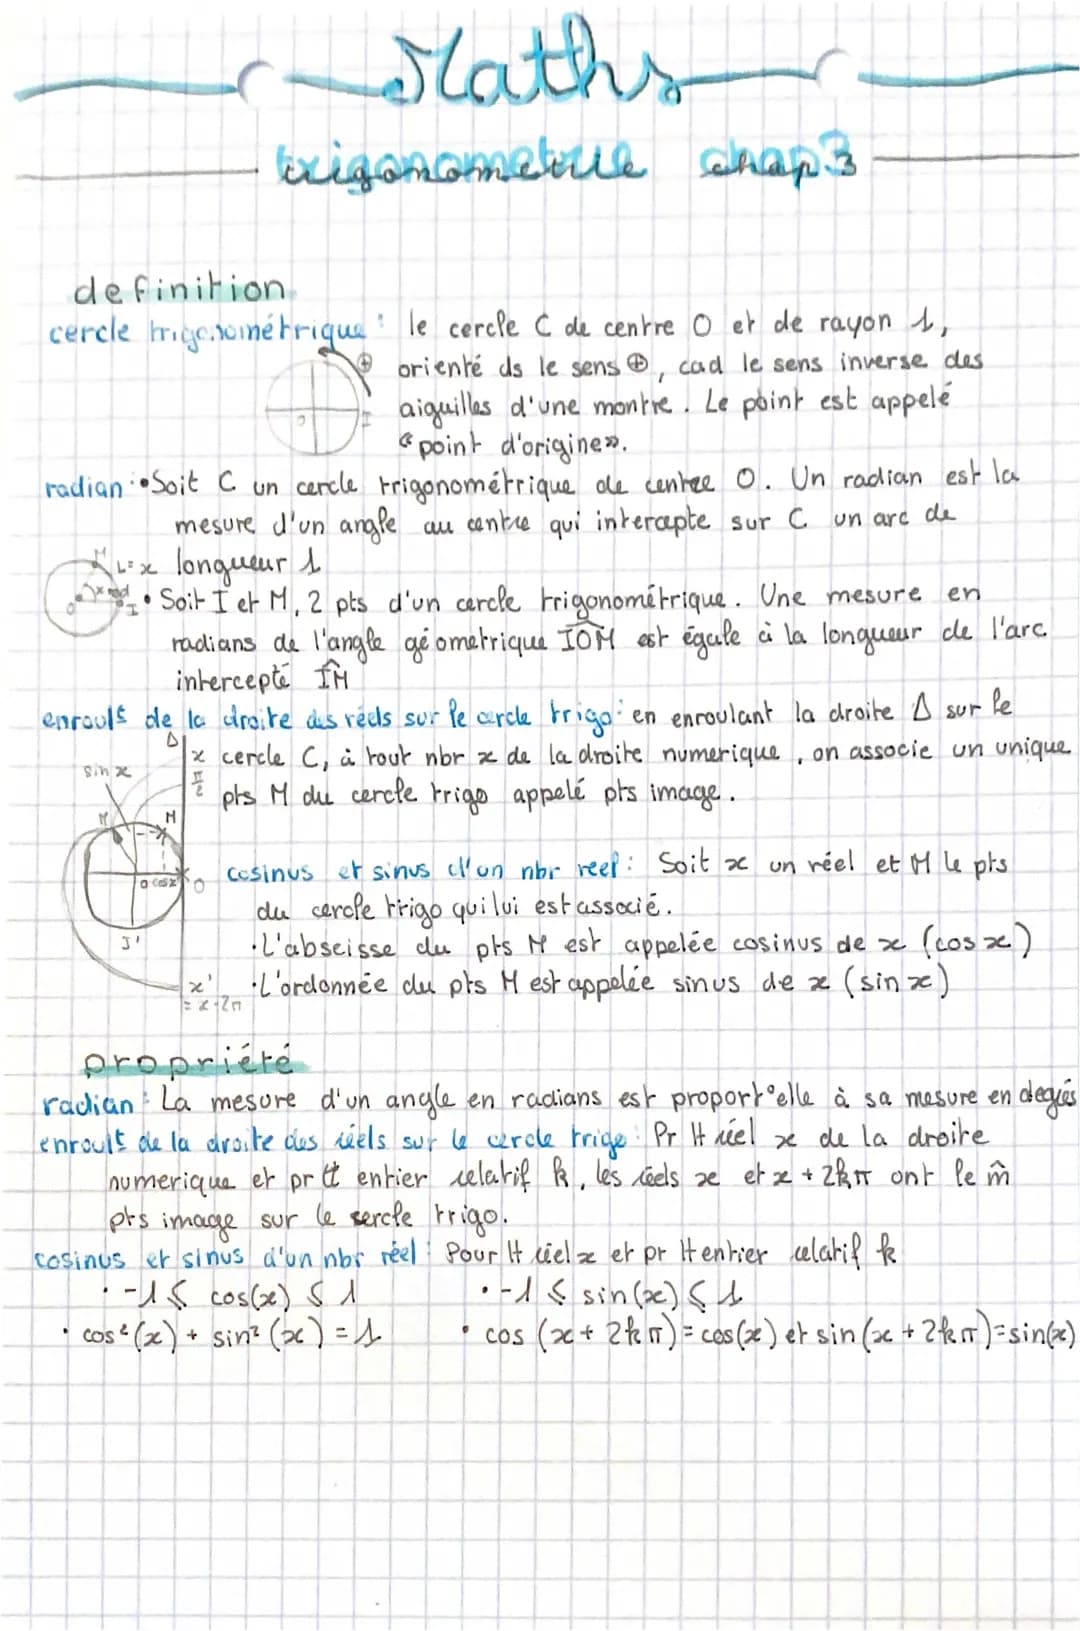 Maths
trigonometrie chap3
definition
cercle trigonométrique : le cercle C de centre O et de rayon 1,
orienté ds le sens ⊕, cad le sens inverse des
aiguilles d'une montre. Le point est appelé
"point d'origine".
⊕
I
O
radian : • Soit C un cercle trigonométrique de centre O. Un radian est la
mesure d'un angle au centre qui intercepte sur C un arc de
longueur 1
M
L=x
x rad
O
I
• Soit I et M, 2 pts d'un cercle trigonométrique. Une mesure en
radians de l'angle géometrique IOM est égale à la longueur de l'arc
intercepté IM
enroult de la droite des réels sur le cercle trigo : en enroulant la droite Δ sur le
cercle C, à tout nbr x de la droite numerique, on associe un unique
pts M du cercle trigo appelé pts image.
Δ
x
π/2
sin x
M
O cos x
O
J'
x'
= x-2π
cosinus et sinus d'un nbr reel : Soit x un réel et M le pts
du cercle trigo qui lui est associé.
• L'abscisse du pts M est appelée cosinus de x (cos x)
• L'ordonnée du pts M est appelée sinus de x (sin x)
propriété
radian : La mesure d'un angle en radians est proport°elle à sa mesure en degrés
enroult de la droite des réels sur le cercle trigo : Pr tt réel x de la droite
numerique et pr tt entier relatif k, les réels x et x + 2kπ ont le m̂
pts image sur le cercle trigo.
cosinus et sinus d'un nbr réel : Pour tt réel x et pr tt entier relatif k
• -1 ≤ cos(x) ≤ 1 • -1 ≤ sin(x) ≤ 1
• cos²(x) + sin²(x) = 1 • cos (x + 2kπ) = cos(x) et sin (x + 2kπ) = sin(x)